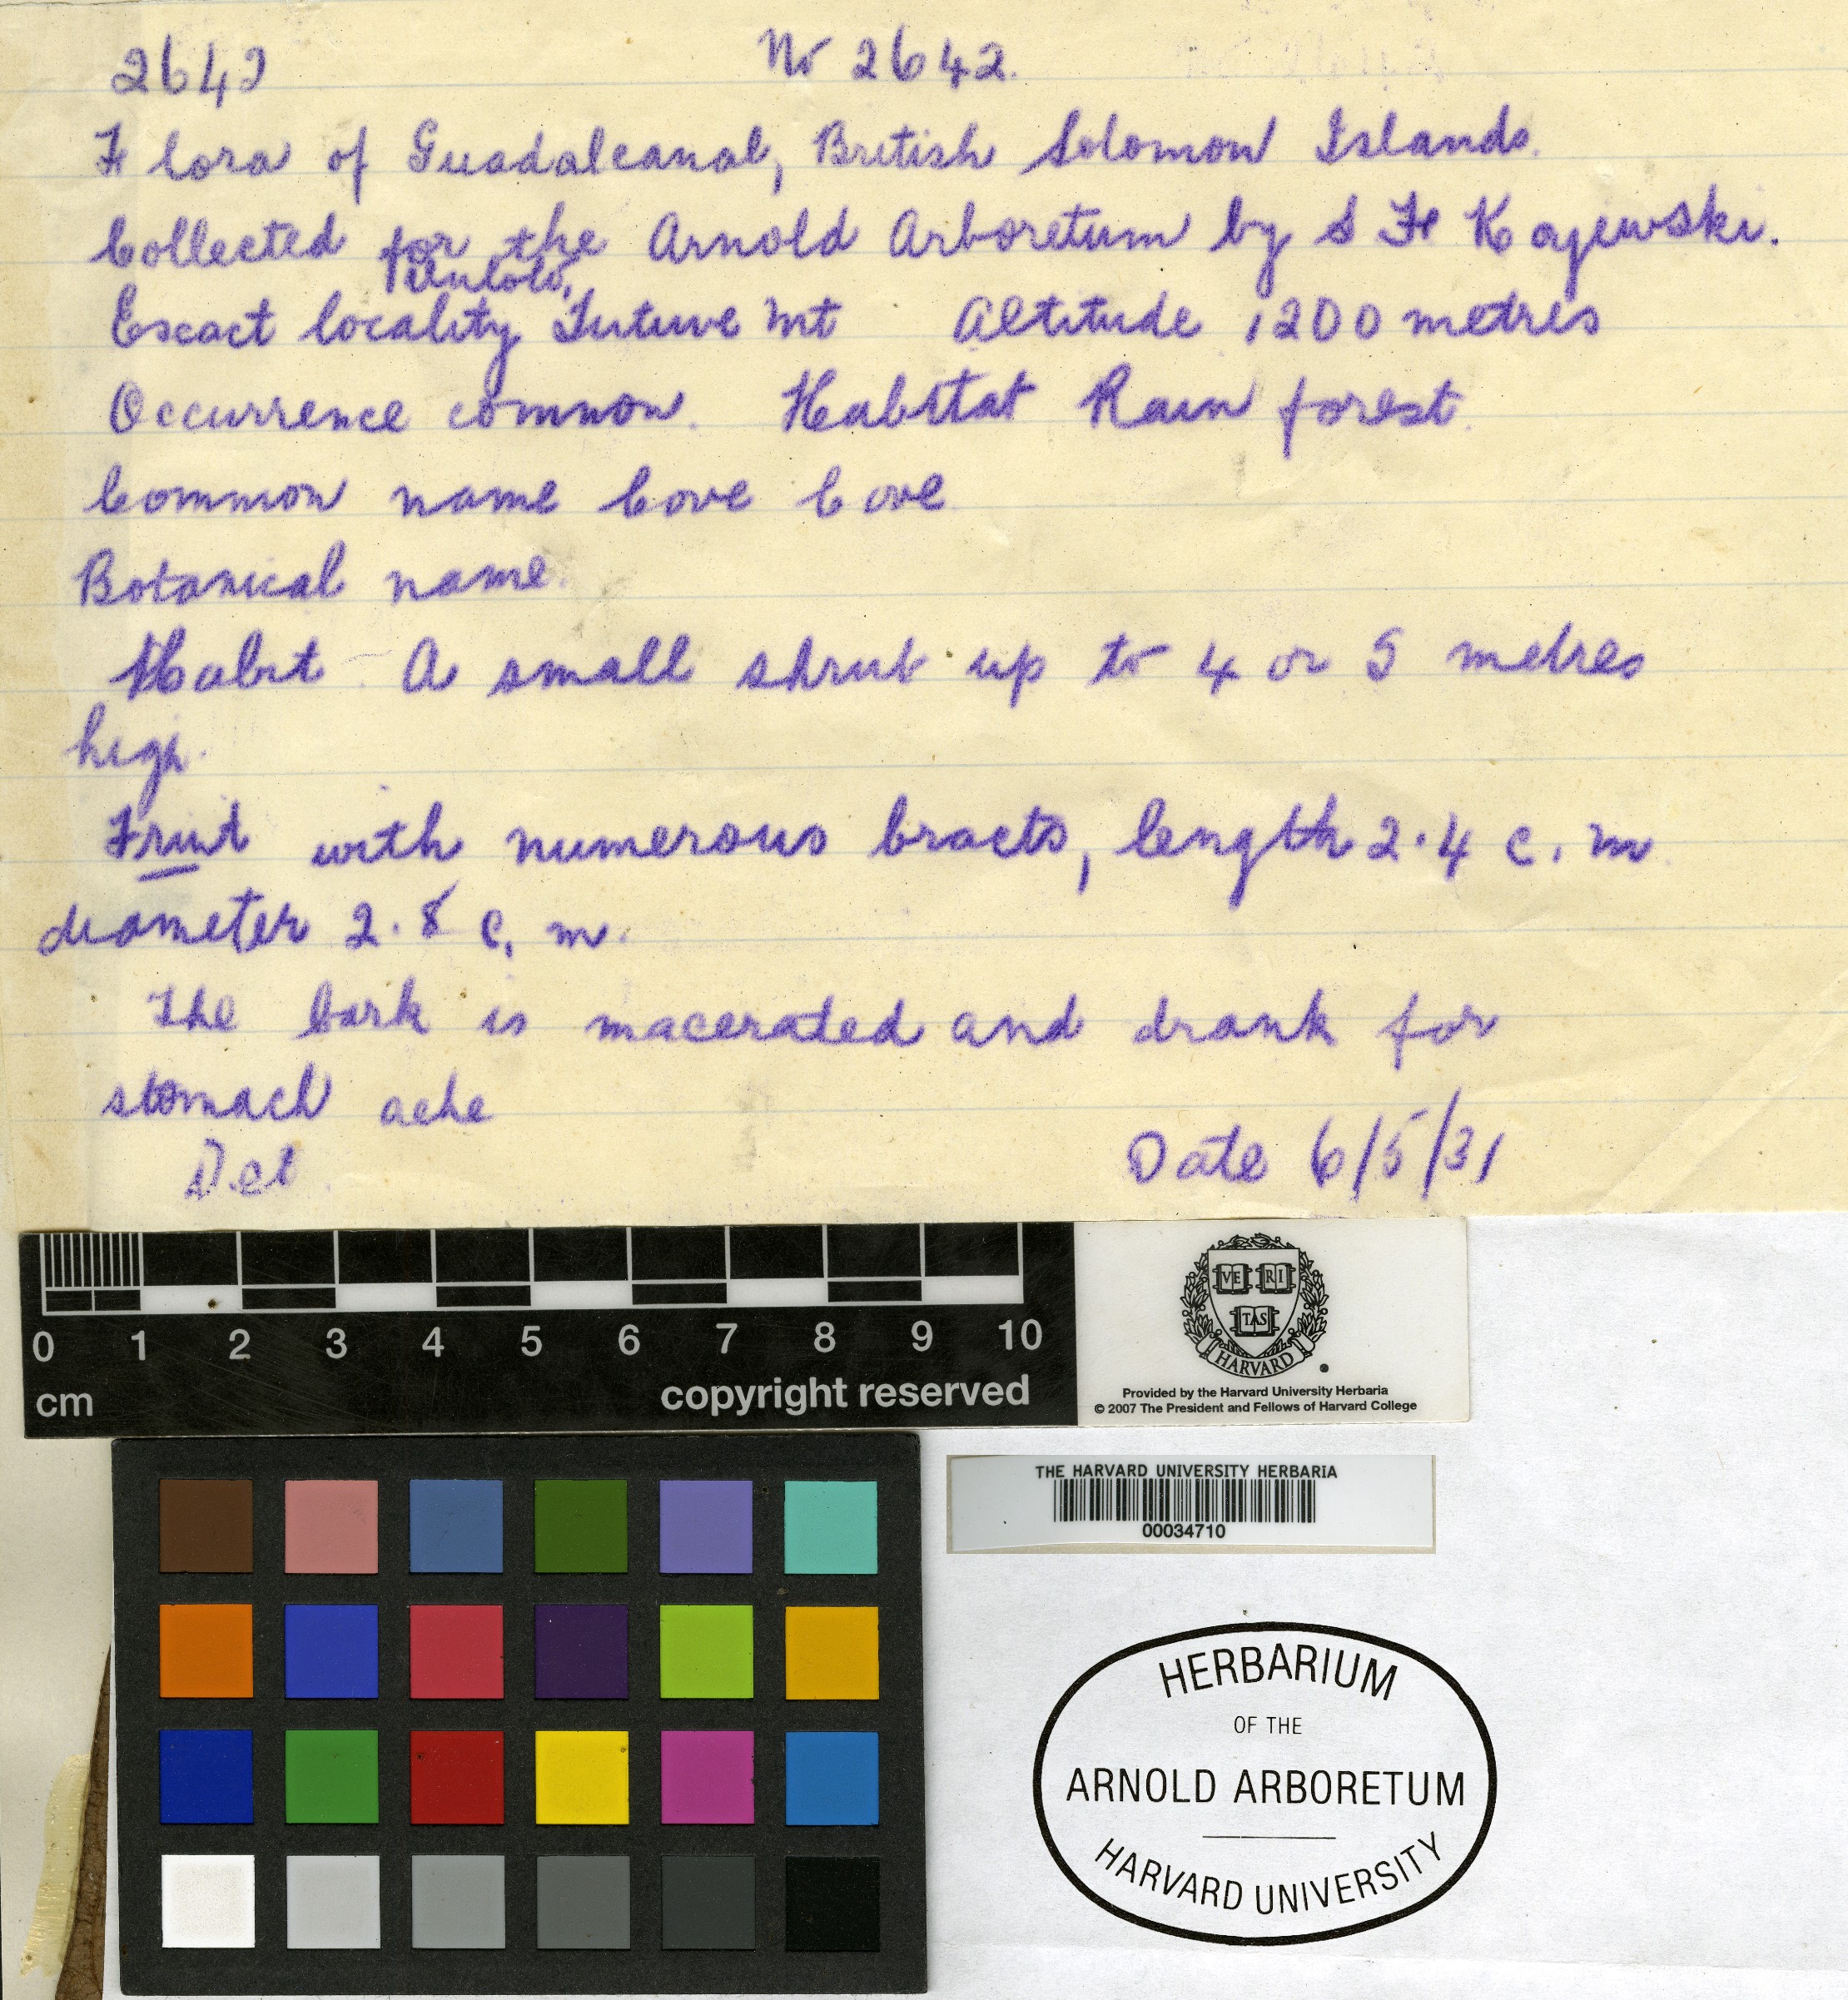 2642 No 2642.
Flora of Guadalcanal, British Solomon Islands.
Collected for the Arnold Arboretum by S F Kajewski.
Uulolo,
Escact locality Tutuve Mt Altitude 1200 metres
Occurrence common. Habitat Rain forest.
Common name Cove Cove
Botanical name.
Habit - A small shrub up to 4 or 5 metres
high.
Fruit with numerous bracts, length 2.4 c.m
diameter 2.8 c.m.
The bark is macerated and drank for
stomach ache
Det. Date 6/5/31
0 1 2 3 4 5 6 7 8 9 10
cm copyright reserved
VE RI
TAS
HARVARD
Provided by the Harvard University Herbaria
© 2007 The President and Fellows of Harvard College
THE HARVARD UNIVERSITY HERBARIA
00034710
HERBARIUM
OF THE
ARNOLD ARBORETUM
HARVARD UNIVERSITY